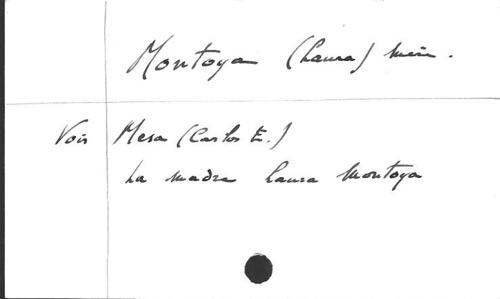 Montoya (Laura) mère.
Voir Mesa (Carlos E.)
La madre Laura Montoya